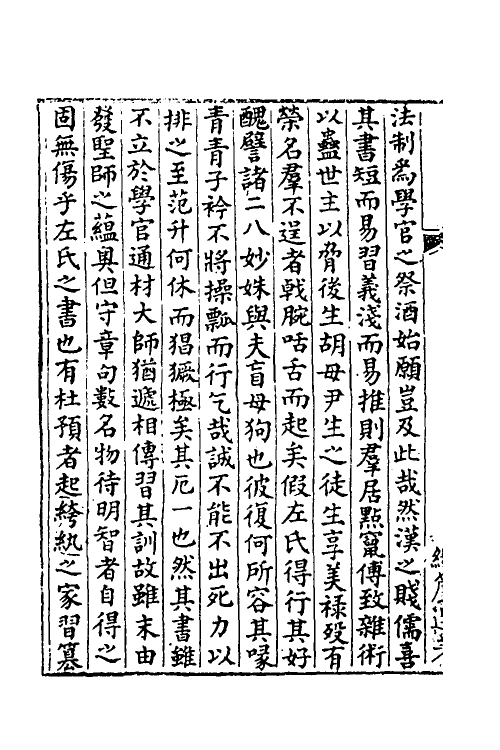 法制為學官之祭酒始願豈及此哉然漢之賤儒喜
其書短而易習義淺而易推則羣居點竄傅致雜術
以蠱世主以脅後生胡毋尹生之徒生享美祿歿有
榮名羣不逞者戟腕咶舌而起矣假左氏得行其好
醜譬諸二八妙姝與夫盲母狗也彼復何所容其喙
青青子衿不將操瓢而行乞哉誠不能不出死力以
排之至范升何休而猖獗極矣其厄一也然其書雖
不立於學官通材大師猶遞相傳習其訓故雖末由
發聖師之蘊奧但守章句數名物待明智者自得之
固無傷乎左氏之書也有杜預者起綺紈之家習篡